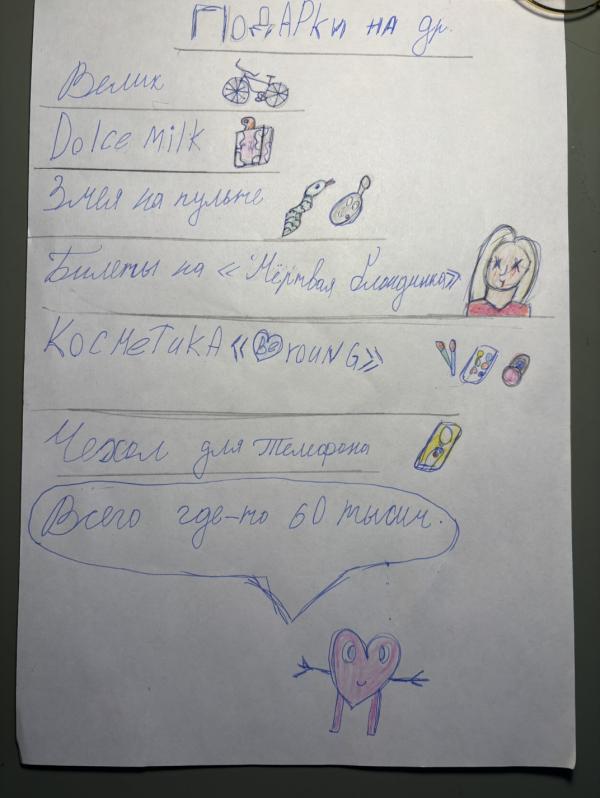 ПОДАРКИ НА др.
Велик
Dolce milk
Змея на пульте
Билеты на «Мёртвая блондинка»
КОСМЕТИКА «Be YOUNG»
Чехол для телефона
Всего где-то 60 тысяч.